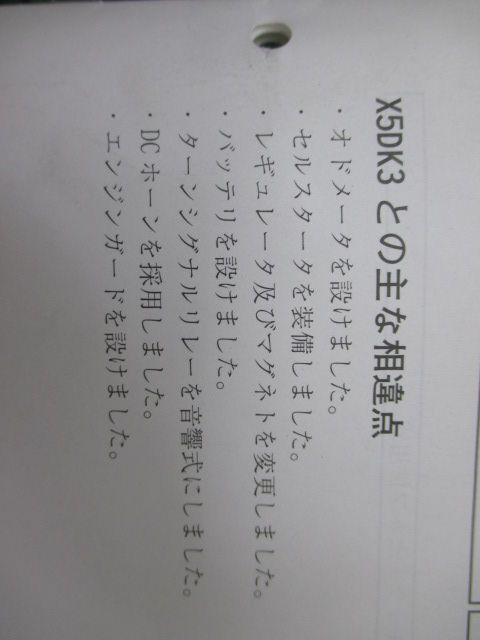 X5DK3 との主な相違点
・オドメータを設けました。
・セルスタータを装備しました。
・レギュレータ及びマグネトを変更しました。
・バッテリを設けました。
・ターンシグナルリレーを音響式にしました。
・DCホーンを採用しました。
・エンジンガードを設けました。